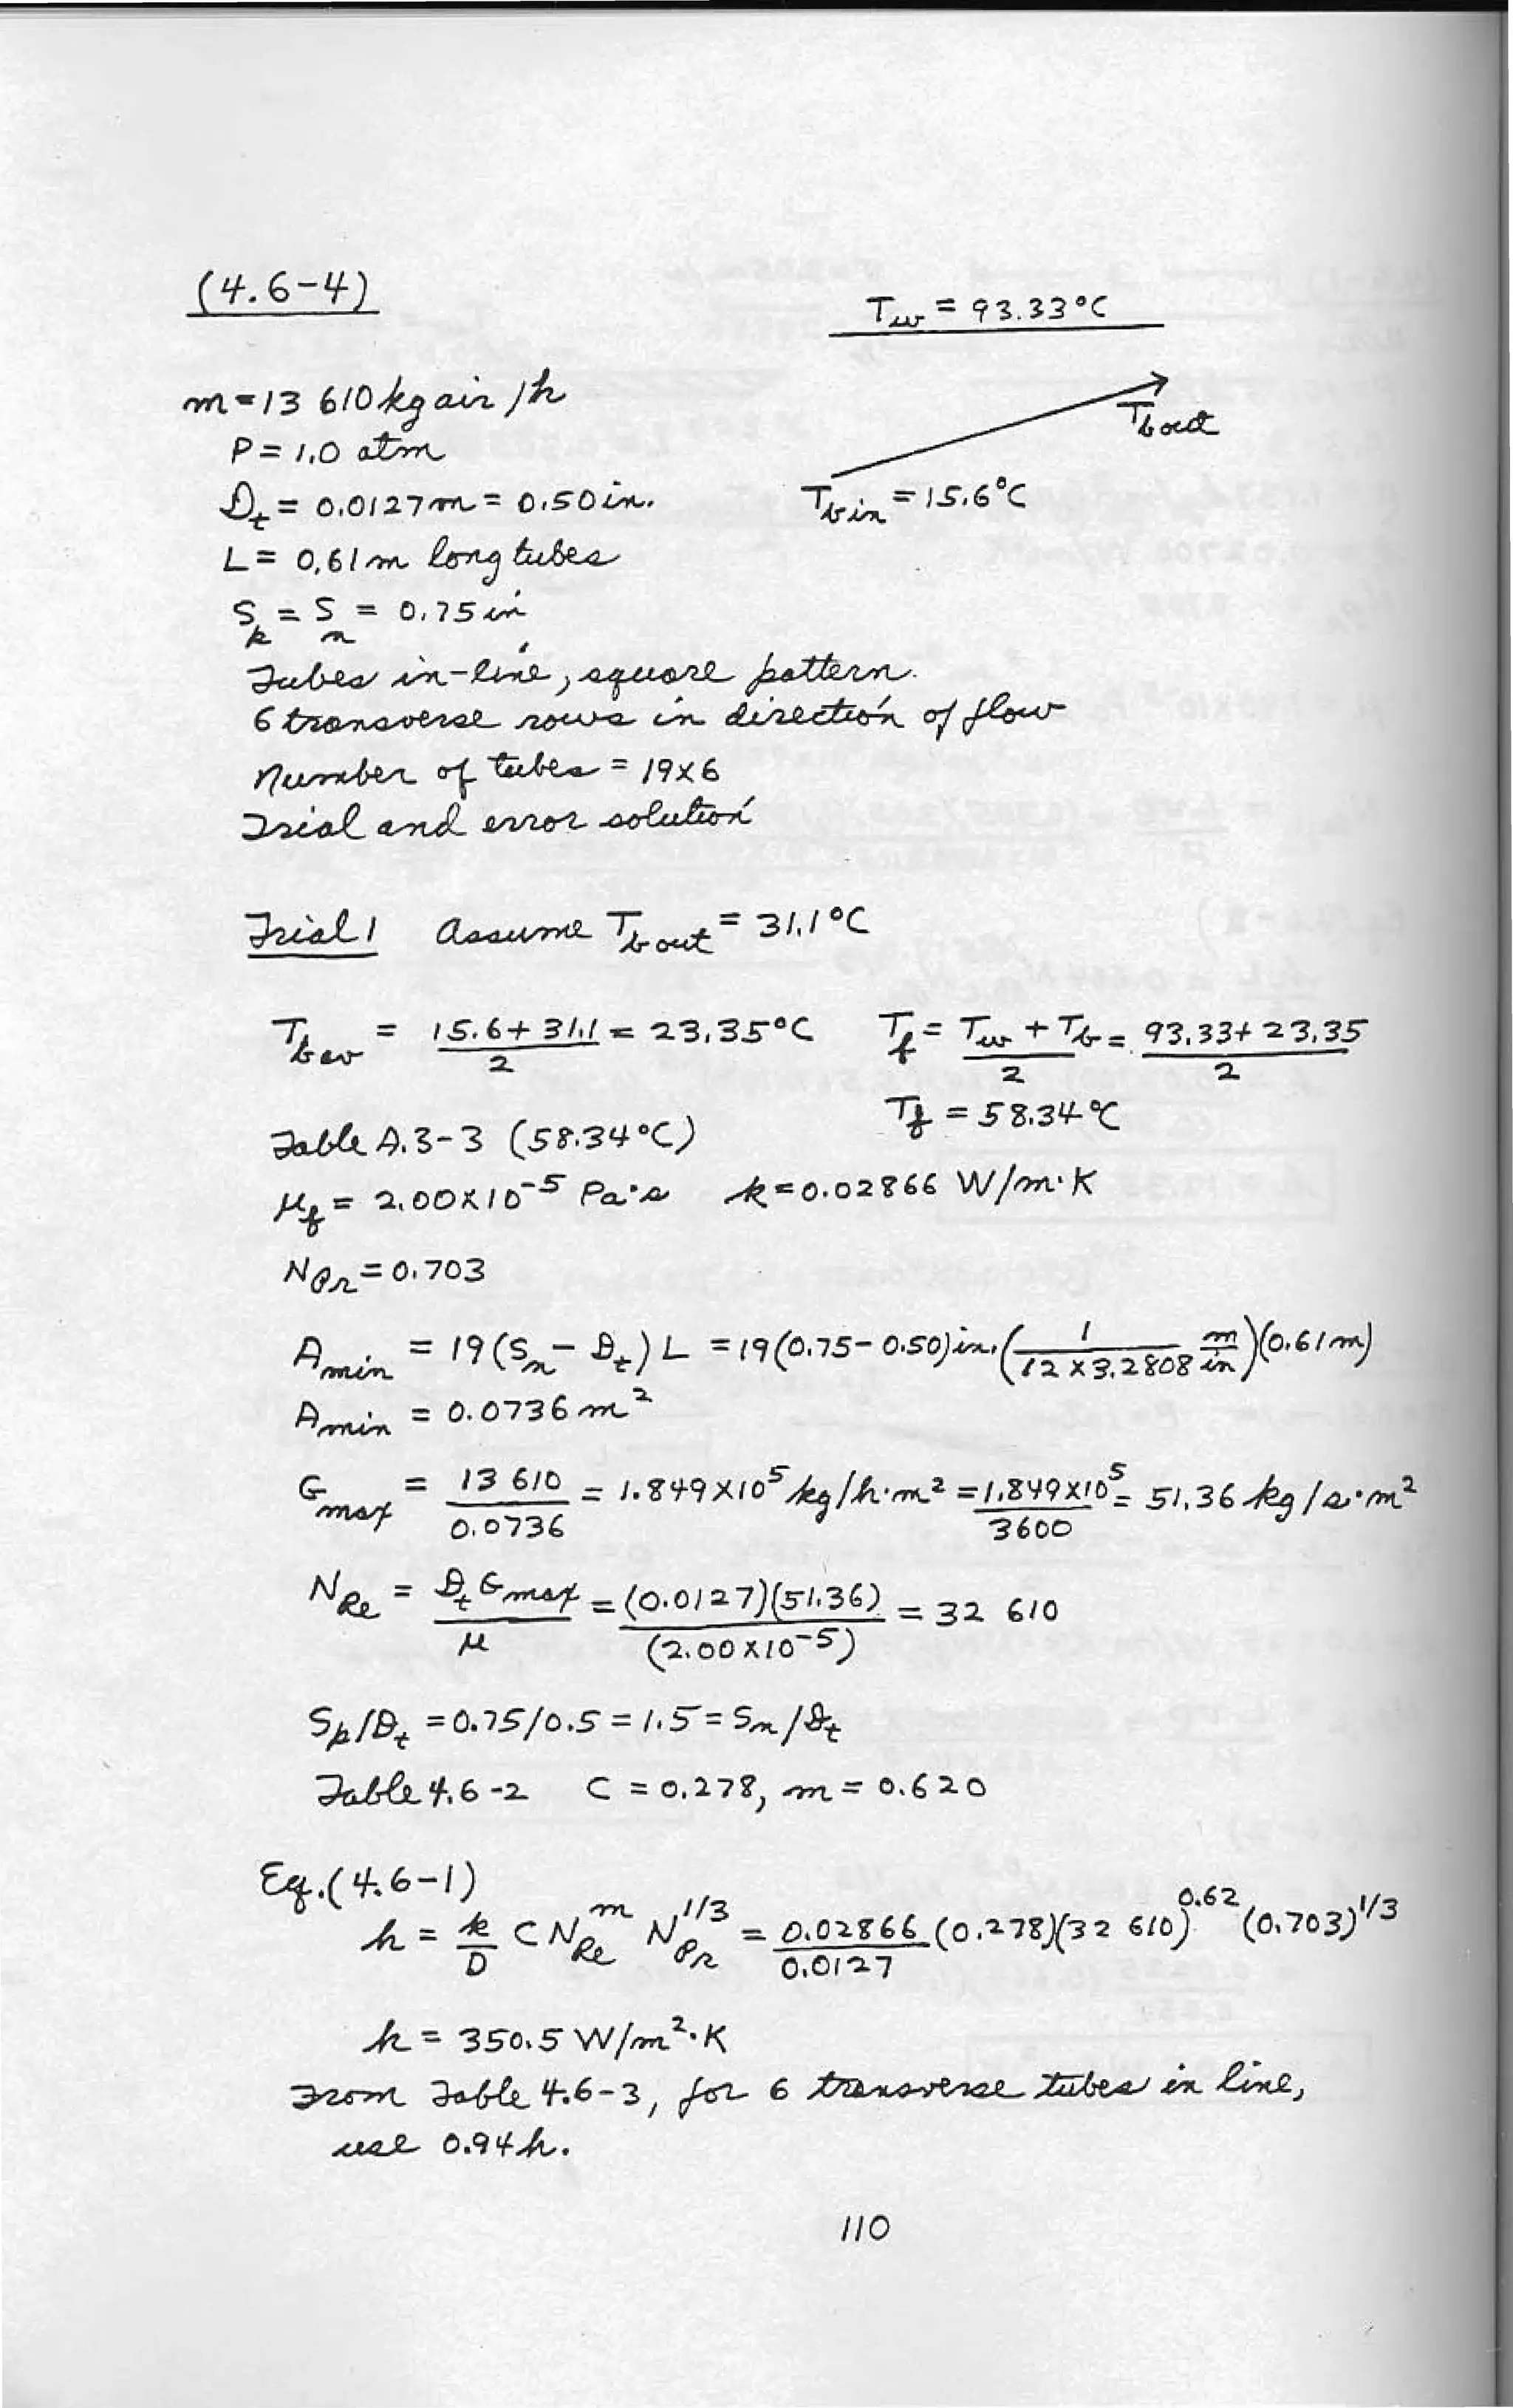 (4.6-4)
T_w = 93.33°C
m = 13 610 kg air/h
T_b out
P = 1.0 atm
D_t = 0.0127 m = 0.50 in.
T_b in = 15.6°C
L = 0.61 m long tubes
S_p = S_n = 0.75 in
Tubes in-line, square pattern.
6 transverse rows in direction of flow
Number of tubes = 19×6
Trial and error solution
Trial 1 Assume T_b out = 31.1°C
T_b av = (15.6 + 31.1)/2 = 23.35°C T_f = (T_w + T_b)/2 = (93.33 + 23.35)/2
T_f = 58.34°C
Table A.3-3 (58.34°C)
μ_f = 2.00×10^-5 Pa·s k = 0.02866 W/m·K
N_Pr = 0.703
A_min = 19(S_n - D_t) L = 19(0.75 - 0.50) in. (1/(12 × 3.2808) m/in)(0.61 m)
A_min = 0.0736 m^2
G_max = 13 610/0.0736 = 1.849×10^5 kg/h·m^2 = 1.849×10^5/3600 = 51.36 kg/s·m^2
N_Re = D_t G_max/μ = (0.0127)(51.36)/(2.00×10^-5) = 32 610
S_p/D_t = 0.75/0.5 = 1.5 = S_n/D_t
Table 4.6-2 C = 0.278, m = 0.620
Eq. (4.6-1)
h = k/D C N_Re^m N_Pr^1/3 = 0.02866/0.0127 (0.278)(32 610)^0.62 (0.703)^1/3
h = 350.5 W/m^2·K
From Table 4.6-3, for 6 transverse tubes in line,
use 0.94h.
110